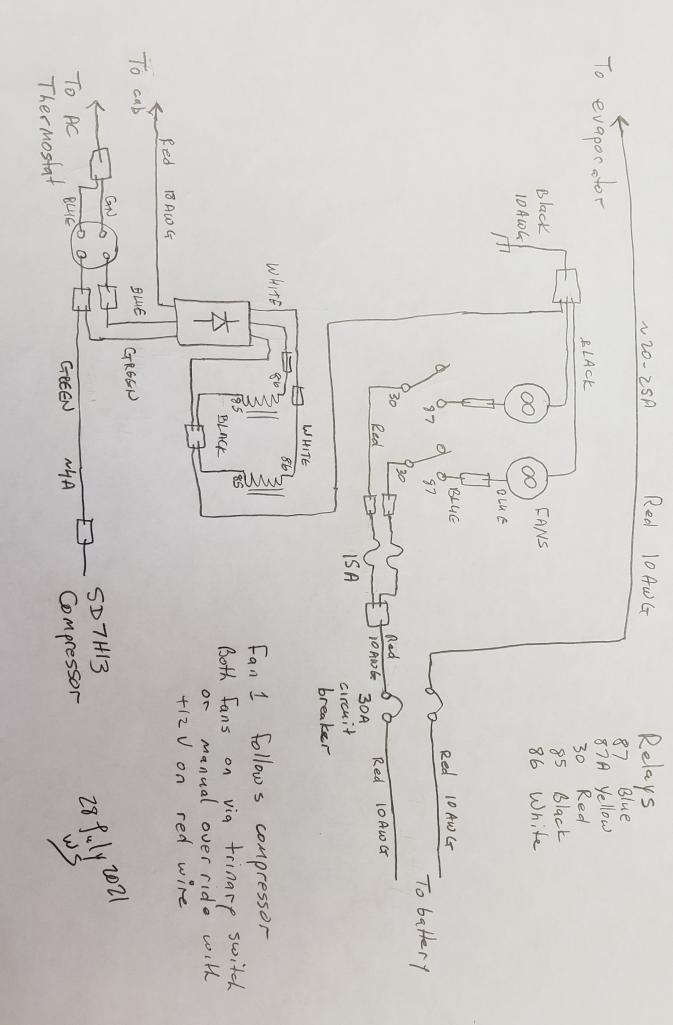 To evaporator
~20-25A
Red 10AWG
Black
10AWG
BLACK
FANS
BLUE
BLUE
87
87
30
30
Red
15A
Red
10AWG
30A
circuit
breaker
Red 10AWG
Red 10AWG
To battery
Relays
87 Blue
87A Yellow
30 Red
85 Black
86 White
To cab
Red 18AWG
WHITE
WHITE
86
85
86
85
BLACK
To AC
Thermostat
GN
BLUE
BLUE
GREEN
GREEN
~4A
SD7H13
Compressor
Fan 1 follows compressor
Both fans on via trinary switch
or manual override with
+12V on red wire
28 July 2021
WS